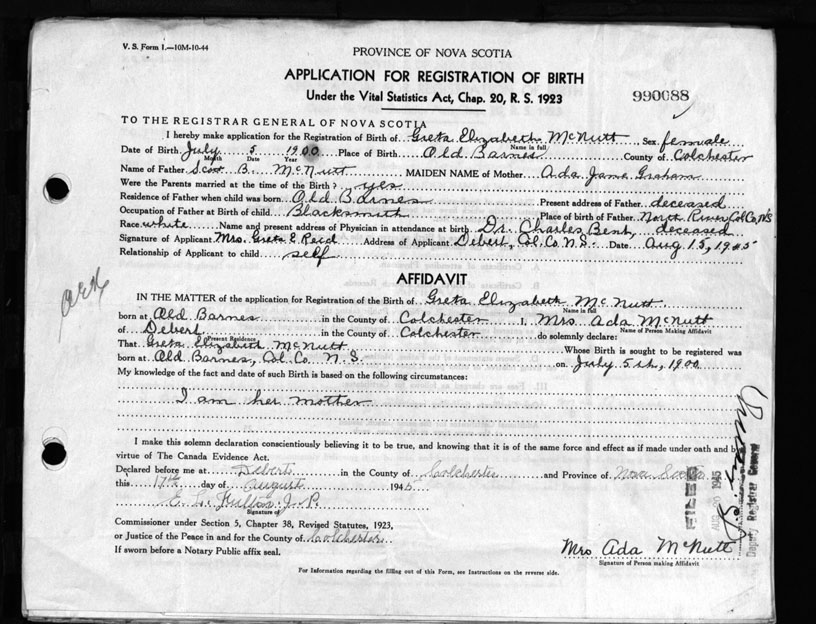 V. S. Form 1.—10M-10-44
PROVINCE OF NOVA SCOTIA
APPLICATION FOR REGISTRATION OF BIRTH
Under the Vital Statistics Act, Chap. 20, R. S. 1923
990088
TO THE REGISTRAR GENERAL OF NOVA SCOTIA
I hereby make application for the Registration of Birth of Greta Elizabeth McNutt Sex female
Name in full
Date of Birth July 5 1900 Place of Birth Old Barnes County of Colchester
Month Date Year
Name of Father Scott B. McNutt MAIDEN NAME of Mother Ada Jane Graham
Were the Parents married at the time of the Birth? yes
Residence of Father when child was born Old Barnes Present address of Father deceased
Occupation of Father at Birth of child Blacksmith Place of birth of Father North River Col Co, NS
Race white Name and present address of Physician in attendance at birth Dr. Charles Bent, deceased
Signature of Applicant Mrs. Greta E. Reid Address of Applicant Debert, Col. Co. N.S. Date Aug 15, 1945
Relationship of Applicant to child self
AFFIDAVIT
IN THE MATTER of the application for Registration of the Birth of Greta Elizabeth McNutt
Name in full
born at Old Barnes in the County of Colchester I, Mrs Ada McNutt
Name of Person Making Affidavit
of Debert in the County of Colchester do solemnly declare:
Present Residence
That Greta Elizabeth McNutt Whose Birth is sought to be registered was
born at Old Barnes, Col. Co. N. S. on July 5th, 1900
My knowledge of the fact and date of such Birth is based on the following circumstances:
I am her mother
I make this solemn declaration conscientiously believing it to be true, and knowing that it is of the same force and effect as if made under oath and by
virtue of The Canada Evidence Act.
Declared before me at Debert in the County of Colchester and Province of Nova Scotia
this 17th day of August 1945
E. L. J. P.
Signature of
Commissioner under Section 5, Chapter 38, Revised Statutes, 1923,
or Justice of the Peace in and for the County of Colchester
If sworn before a Notary Public affix seal.
Mrs Ada McNutt
Signature of Person making Affidavit
For Information regarding the filling out of this Form, see Instructions on the reverse side.
FILED
1945
Deputy Registrar General